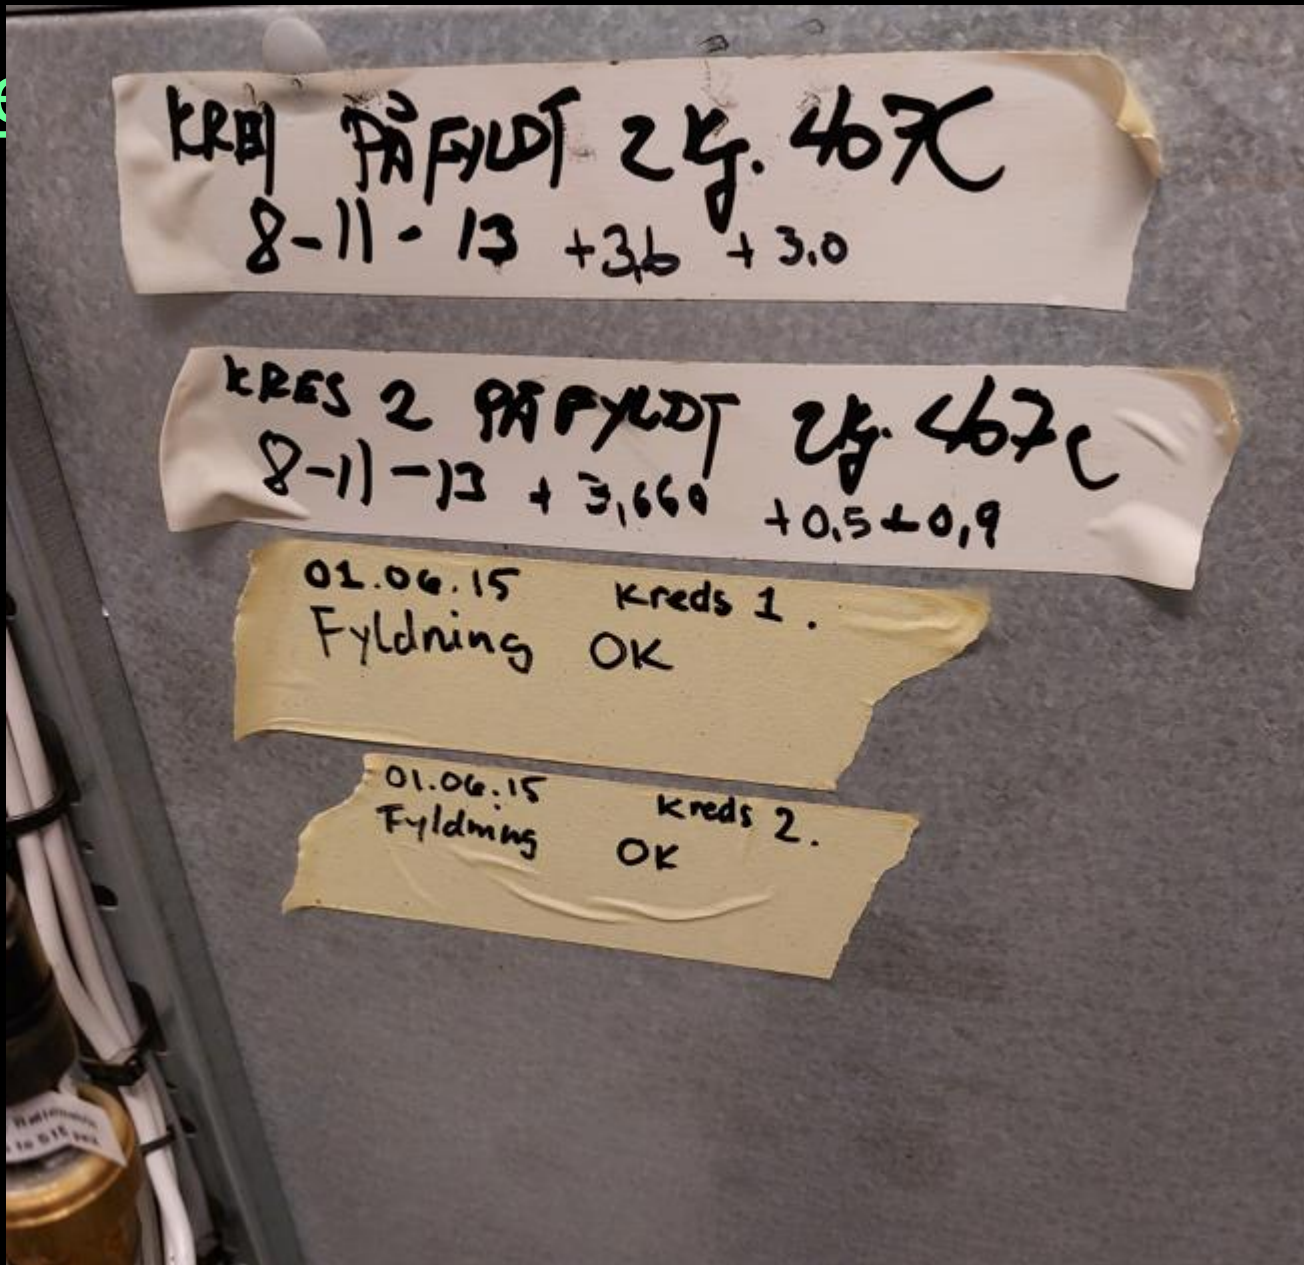 PÅFYLDT 2 kg. 407C
8-11-13 +3,6 +3,0
KRES 2 PÅFYLDT 2kg. 407C
8-11-13 + 3,660 +0,5+0,9
01.06.15 Kreds 1.
Fyldning OK
01.06.15 Kreds 2.
Fyldning OK
to 515 psi